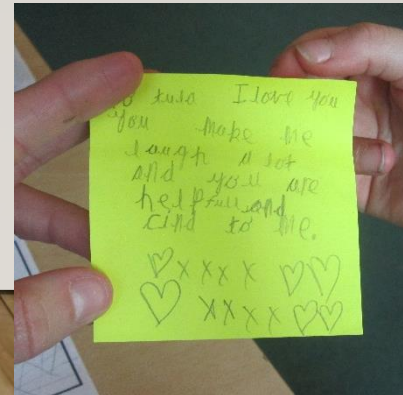 To tula I love you
you make me
laugh a lot
and you are
helpfull and
cind to me.
x x x x
x x x x